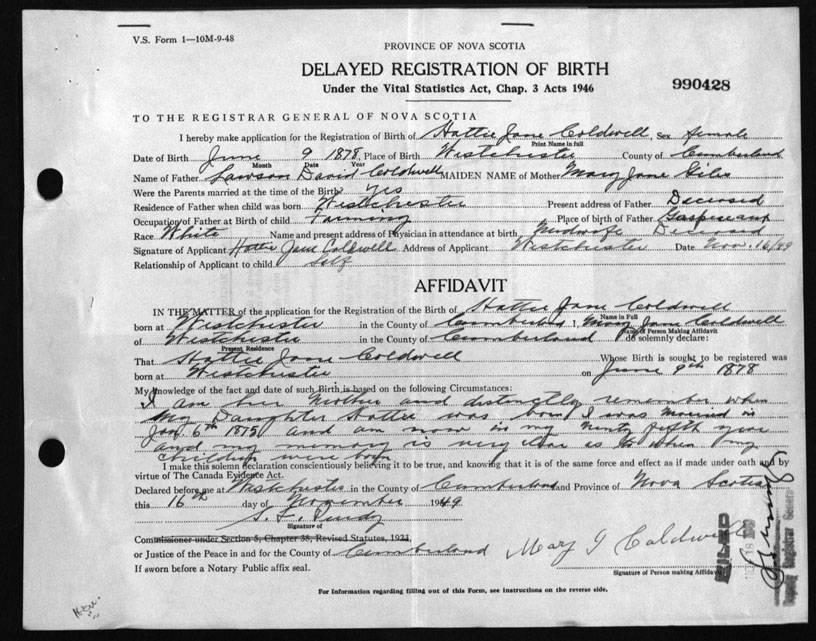 V.S. Form 1—10M-9-48
PROVINCE OF NOVA SCOTIA
DELAYED REGISTRATION OF BIRTH
Under the Vital Statistics Act, Chap. 3 Acts 1946
990428
TO THE REGISTRAR GENERAL OF NOVA SCOTIA
I hereby make application for the Registration of Birth of Hattie Jane Coldwell, Sex female
Print Name in full
Date of Birth June 9 1878, Place of Birth Westchester County of Cumberland
Month Date Year
Name of Father Lawson David Coldwell MAIDEN NAME of Mother Mary Jane Giles
Were the Parents married at the time of the Birth? Yes
Residence of Father when child was born Westchester Present address of Father Deceased
Occupation of Father at Birth of child Farming Place of birth of Father
Race White Name and present address of Physician in attendance at birth Midwife Deceased
Signature of Applicant Hattie Jane Coldwell Address of Applicant Westchester Date Nov. 16/49
Relationship of Applicant to child Self
AFFIDAVIT
IN THE MATTER of the application for the Registration of the Birth of Hattie Jane Coldwell
Name in Full
born at Westchester in the County of Cumberland I, Mary Jane Coldwell
Name of Person Making Affidavit
of Westchester in the County of Cumberland do solemnly declare:
Present Residence
That Hattie Jane Coldwell Whose Birth is sought to be registered was
born at Westchester on June 9th 1878
My knowledge of the fact and date of such Birth is based on the following Circumstances:
I am her Mother and distinctly remember when
My Daughter Hattie was born I was married in
Jan 6th 1875 and am now in my ninty fifth year
and my memory is very clear as to when my
children were born
I make this solemn declaration conscientiously believing it to be true, and knowing that it is of the same force and effect as if made under oath and by
virtue of The Canada Evidence Act.
Declared before me at Westchester in the County of Cumberland and Province of Nova Scotia
this 16th day of November 1949
S. F. Purdy
Signature of
Commissioner under Section 5, Chapter 38, Revised Statutes, 1923,
or Justice of the Peace in and for the County of Cumberland Mary J Caldwell
Signature of Person making Affidavit
If sworn before a Notary Public affix seal.
For Information regarding filling out of this Form, see Instructions on the reverse side.
FILED
Deputy Registrar General